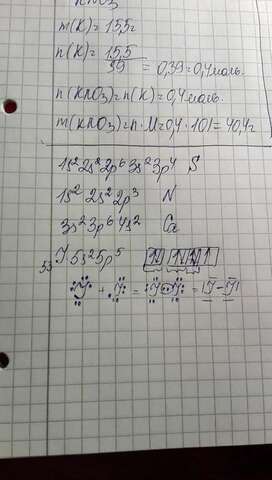 KNO₃
m(K) = 15,5г
n(K) = 15,5/39 = 0,39 = 0,4 моль.
n(KNO₃) = n(K) = 0,4 моль.
m(KNO₃) = n · M = 0,4 · 101 = 40,4г
1s² 2s² 2p⁶ 3s² 3p⁴ S
1s² 2s² 2p³ N
3s² 3p⁶ 4s² Ca
53 I 5s² 5p⁵
I + I = I I = I – I